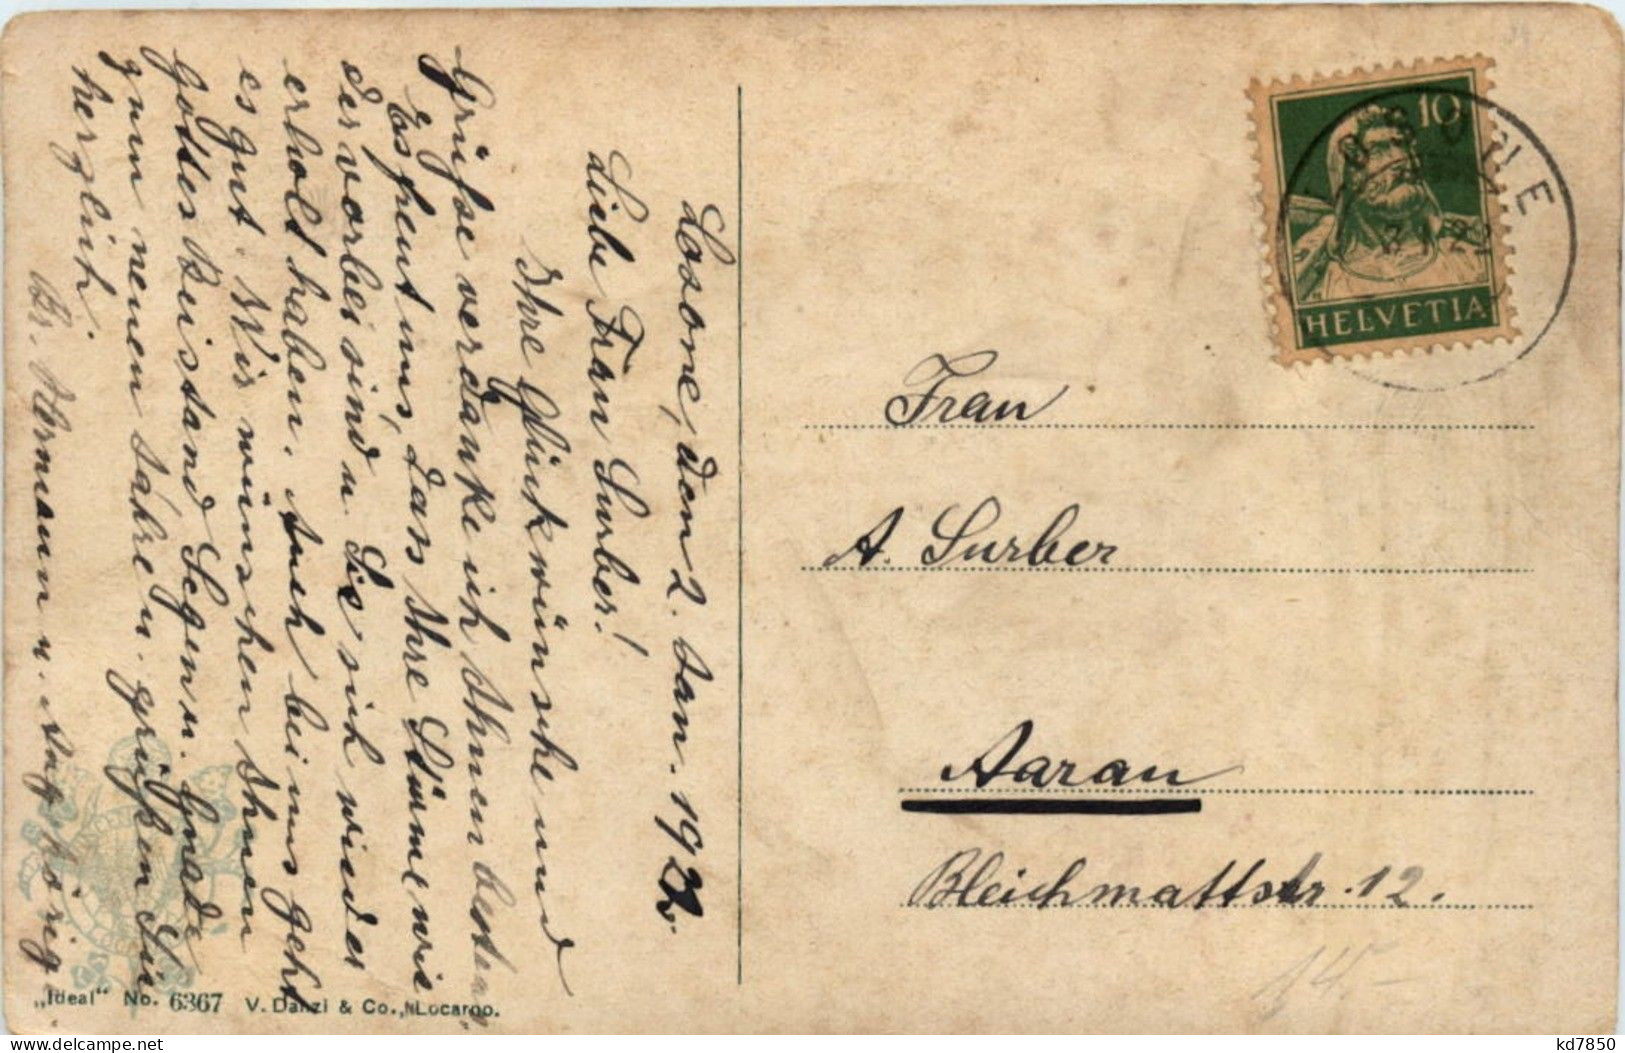 Losone, den 2. Jan. 1922.
Liebe Frau Surber!
Ihre Glückwünsche und
Grüsse verdanke ich Ihnen bestens
Es freut uns, dass Ihre Stürme wie
der vorbei sind u. Sie sich wieder
erholt haben. Auch bei uns geht
es gut. Wir wünschen Ihnen
Gottes Beistand Segen u. Gnade
zum neuen Jahre u. grüßen Sie
herzlich
Br. Hermann u. Angehörige
"Ideal" No. 6367 V. Danzi & Co., Locarno.
10
HELVETIA
LOSONE
Frau
A. Surber
Aarau
Bleichmattstr. 12.
14.-
kd7850